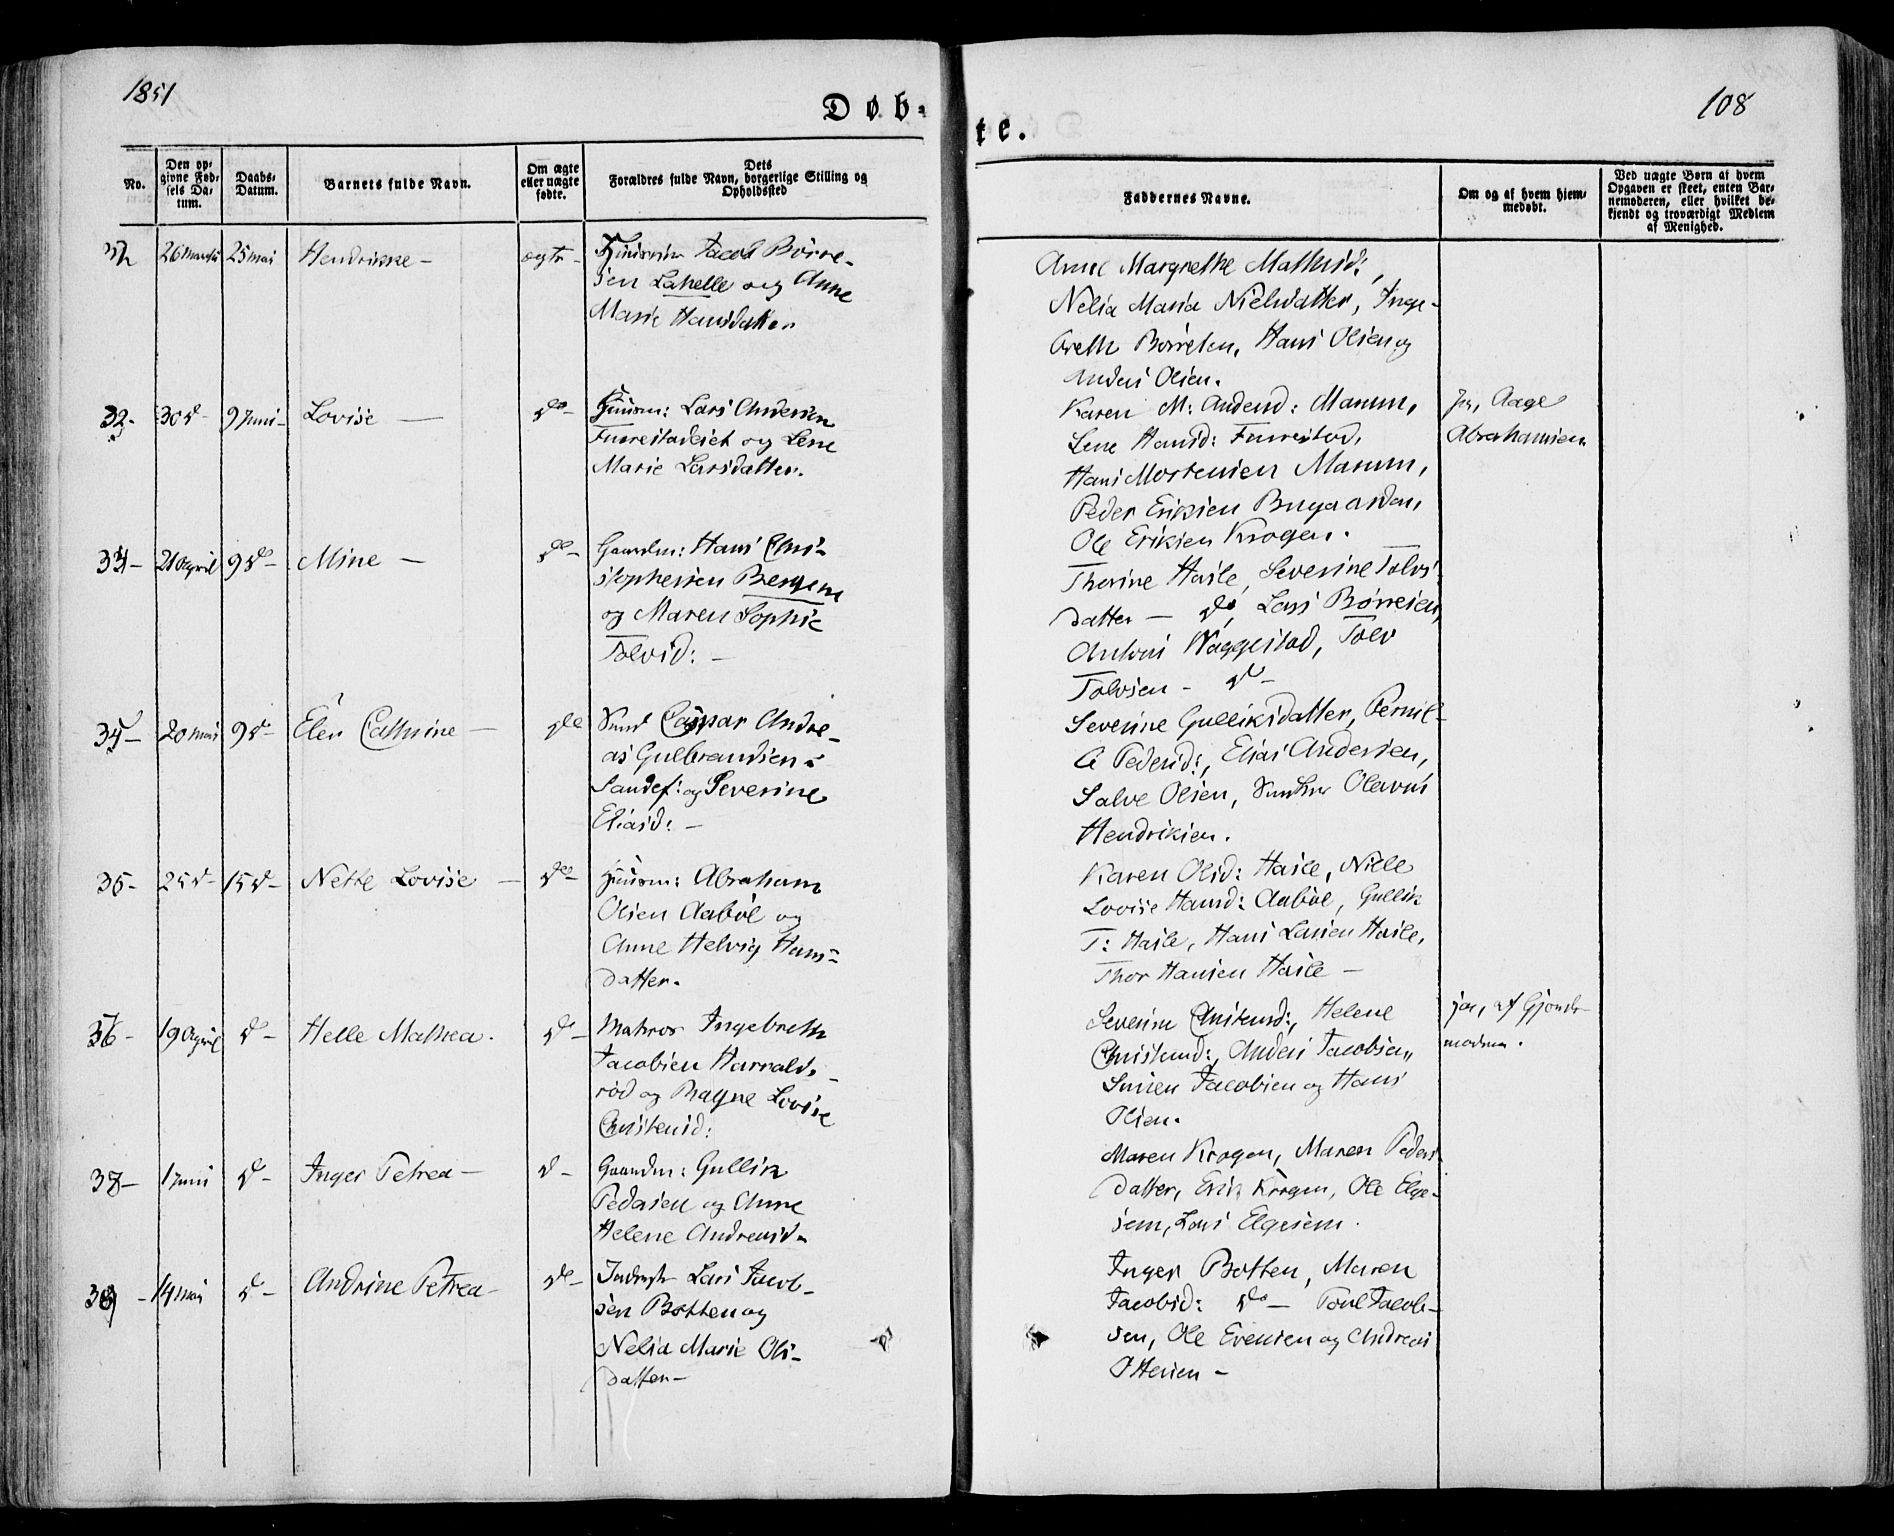 1851
108
Døb-
te.
No.
Den op-
givne Fød-
sels Da-
tum.
Daabs-
Datum.
Barnets fulde Navn.
Om ægte
eller uægte
fødte.
Dets
Forældres fulde Navn, borgerlige Stilling og
Opholdssted
Faddernes Navne.
Om og af hvem hjem-
medøbt.
Ved uægte Børn af hvem
Opgaven er skeet, enten Bar-
nemoderen, eller hvilket be-
kjendt og troværdigt Medlem
af Menighed.
26 Marts 25 Mai Hendrikke - ægte - Jacob Børre-
sen Lahelle og Anne
Marie Hansdatter
Anne Margrethe Mathisd:,
Nelia Maria Nielsdatter, Inge-
breth Børresen, Hans Olsen og
Anders Olsen.
32- 30 d- 9 Juni- Lovise — do- Huusm: Lars Andersen
Furrestadeiet og Lene
Marie Larsdatter.
Karen M: Andersd: Mamm,
Lene Hansd: Furrestad,
Hans Mortensen Mamm,
Peder Eriksen Bugaarden,
Ole Eriksen Krogen.
Ja, Aage
Abrahamsen
33- 21 April 9 do- Mine — do- Gaardm: Hans Chri-
stophersen Bergene
og Maren Sophie
Tolvsd: -
Thorine Hasle, Severine Tolvs-
datter — do, Lars Børresen,
Antoni Waggestad, Tolv
Tolvsen - do-
34- 20 Mai 9 d- Elen Cathrine - do Smed Caspar Andre-
as Gulbrandsen i
Sandef: og Severine
Eliasd: -
Severine Gulliksdatter, Pernil-
le Pedersd:, Elias Andersen,
Salve Olsen, Olavus
Hendriksen.
35- 25 d- 15 d- Nette Lovise - do- Huusm: Abraham
Olsen Aabøl og
Anne Helvig Hans-
datter.
Karen Olsd: Hasle, Nille
Lovise Hansd: Aabøl, Gullik
T: Hasle, Hans Larsen Hasle,
Thor Hansen Hasle -
36- 19 April d- Helle Mathea. do- Matros Ingebreth
Jacobsen Harvalds-
rød og Ragne Lovise
Christensd:
Severine Christensd:, Helene
Christensd:, Anders Jacobsen,
Simen Jacobsen og Hans
Olsen.
ja, af Gjorde-
moderen.
37- 1 Juni d- Inger Petrea - d- Gaardm: Gullik
Pedersen og Anne
Helene Andreasd.
Maren Krogen, Maren Peders-
datter, Erik Krogen, Ole Elge-
sem, Lars Elgesem.
38 - 14 Mai d- Andrine Petrea - do- Inderst Lars Jacob-
sen Botten og
Nelia Marie Ols-
datter -
Inger Botten, Maren
Jacobsd: do- Poul Jacob-
sen, Ole Evensen og Andreas
Ottersen -